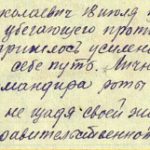 колаевич 18 июля
цветающего прот
пришлось усилен
себе путь. Лично
мандира роты
не щадя своей жи
равительственной